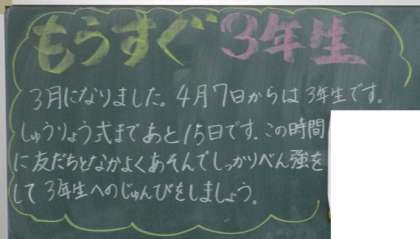 もうすぐ3年生
3月になりました。4月7日からは3年生です。
しゅうりょう式まであと15日です。この時間
に友だちとなかよくあそんでしっかりべん強を
して3年生へのじゅんびをしましょう。